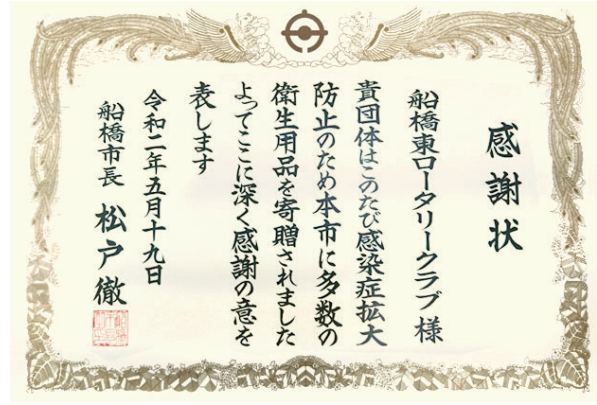 感謝状
船橋東ロータリークラブ 様
貴団体はこのたび感染症拡大
防止のため本市に多数の
衛生用品を寄贈されました
よってここに深く感謝の意を
表します
令和二年五月十九日
船橋市長 松戸徹